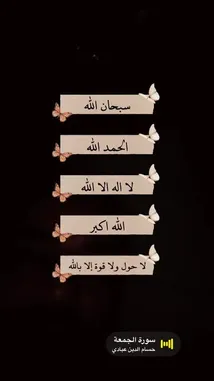 سبحان الله
الحمد الله
لا اله الا الله
الله اكبر
لا حول ولا قوة إلا بالله
سورة الجمعة
حسام الدين عبادي